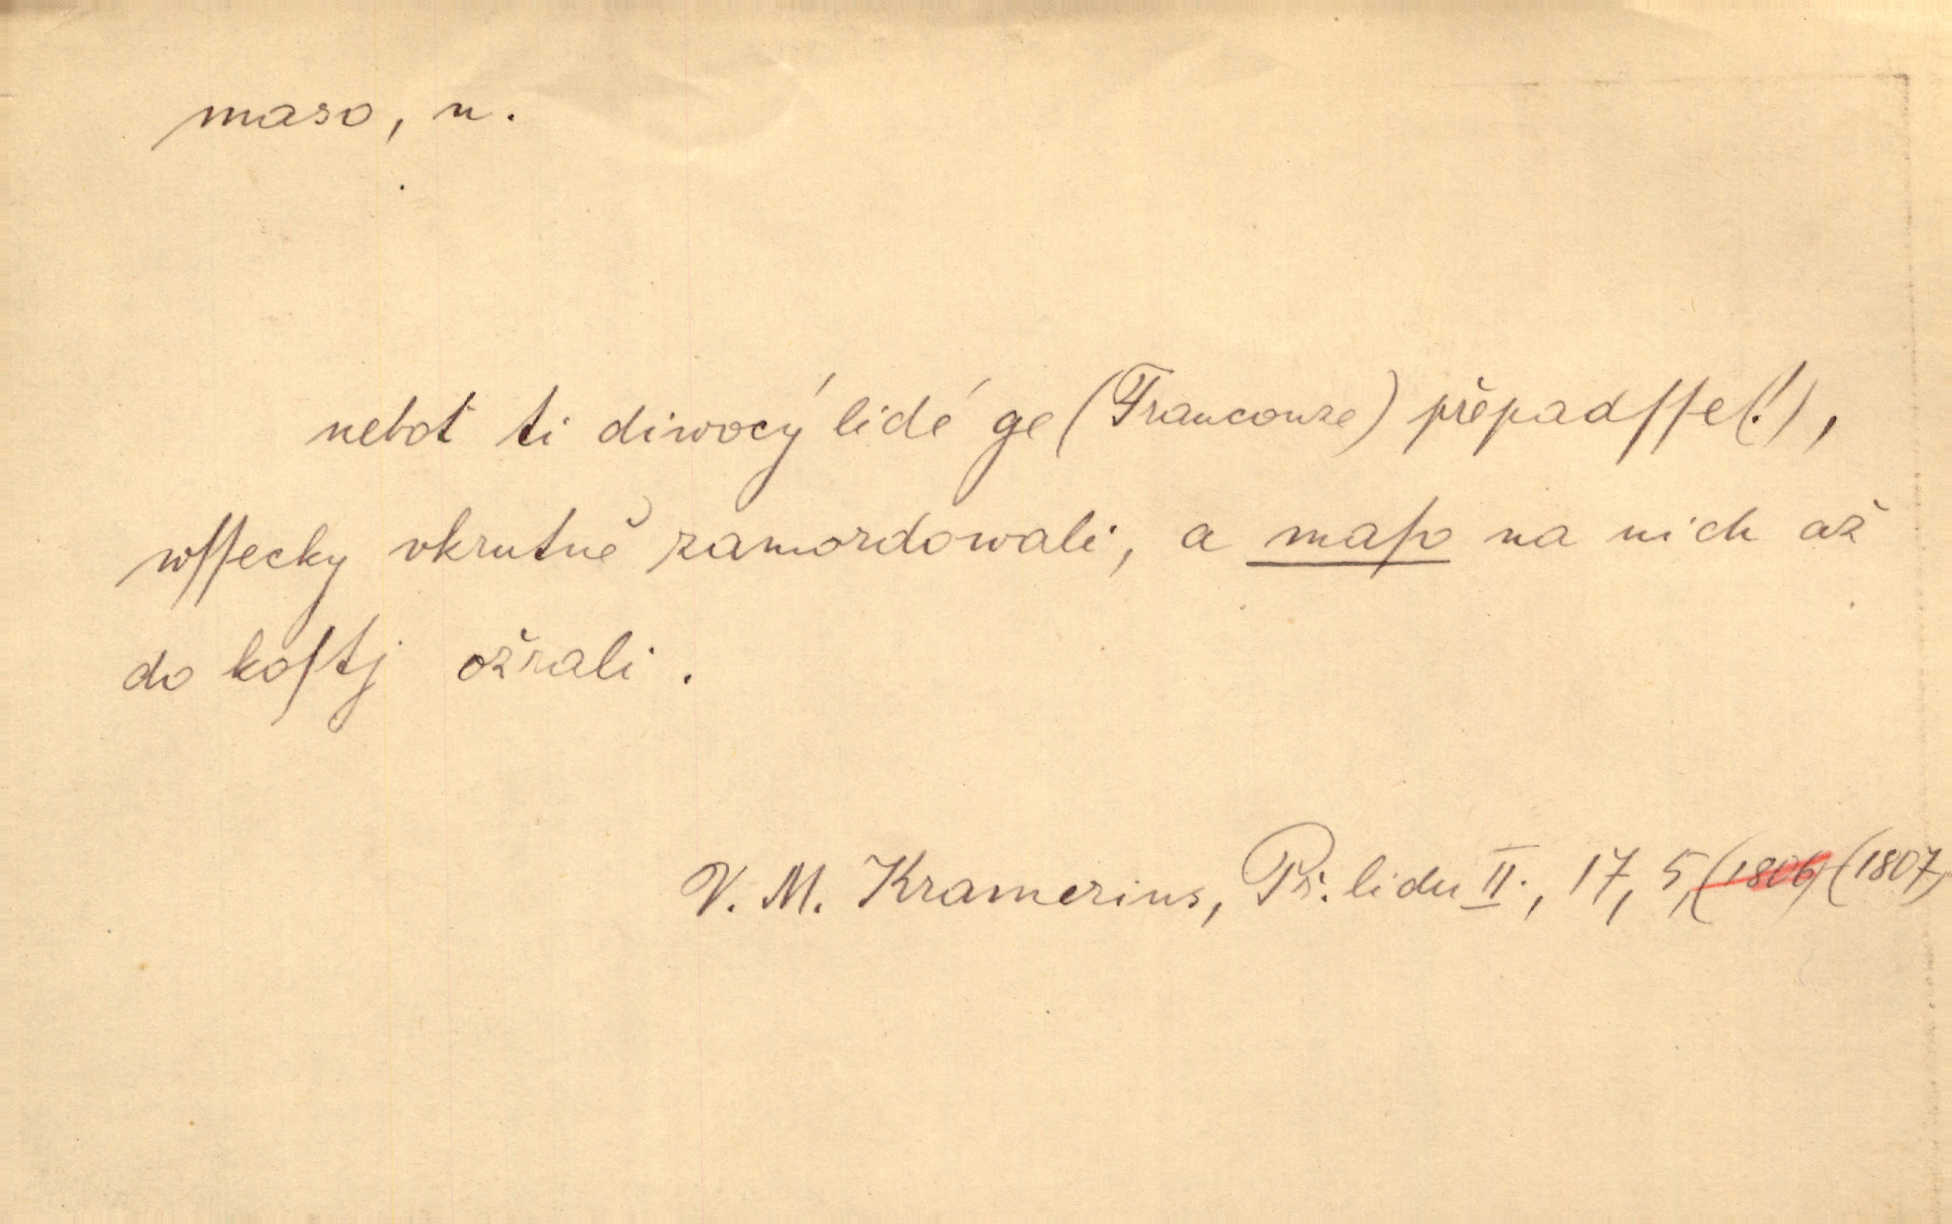 maso, n.
neboť ti diwocý lidé ge (Francouze) přepadſſe(!),
wſſecky vkrutně zamordowali, a maſo na nich až
do koſtj ožrali.
V. M. Kramerius, Př. lidu II., 17, 5, (1806) (1807)